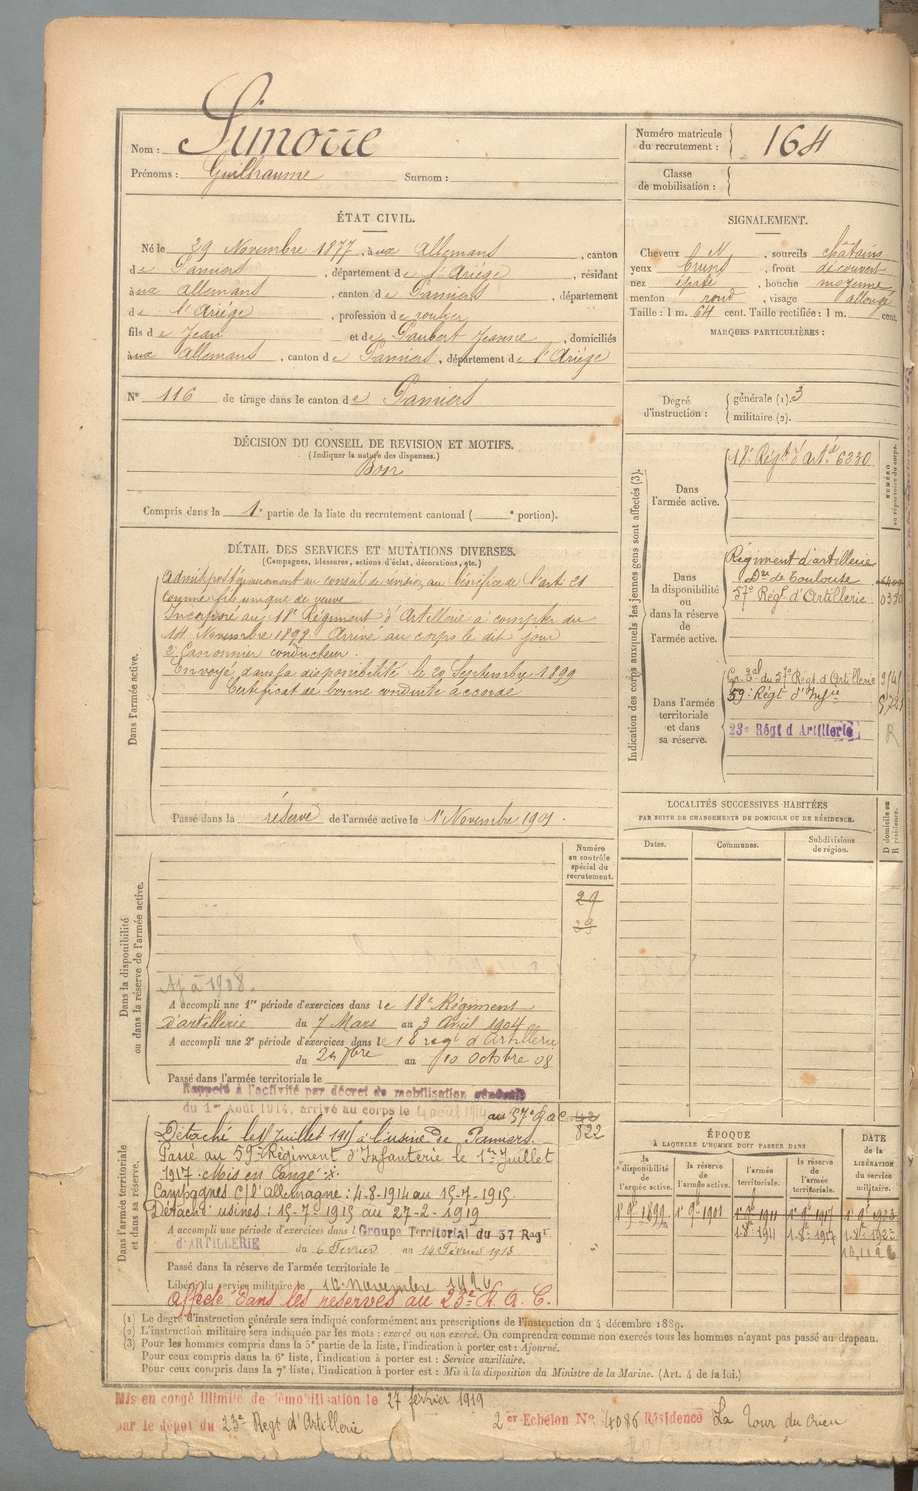 Nom : Simorre
Prénoms : Guilhaume Surnom :
Numéro matricule du recrutement : 164
Classe de mobilisation :
ÉTAT CIVIL.
Né le 29 Novembre 1877, à aux Allemans, canton
de Pamiers, département de l'Ariége, résidant
à aux Allemans, canton de Pamiers, département
de l'Ariége, profession de roulier
fils de Jean et de Gaubert Jeanne, domiciliés
à aux Allemans, canton de Pamiers, département de l'Ariége
N° 116 de tirage dans le canton de Pamiers
SIGNALEMENT.
Cheveux N, sourcils châtains
yeux bruns, front découvert
nez épaté, bouche moyenne
menton rond, visage allongé
Taille : 1 m. 64 cent. Taille rectifiée : 1 m. cent.
MARQUES PARTICULIÈRES :
Degré d'instruction : générale (1). 3
militaire (2).
DÉCISION DU CONSEIL DE REVISION ET MOTIFS.
(Indiquer la nature des dispenses.)
Bon
Compris dans la 1e partie de la liste du recrutement cantonal ( e portion).
DÉTAIL DES SERVICES ET MUTATIONS DIVERSES.
(Campagnes, blessures, actions d'éclat, décorations, etc.)
Dans l'armée active.
Admis postérieurement au conseil de révision au bénéfice de l'art 21
comme fils unique de veuve
Incorporé au 18e Régiment d'Artillerie à compter du
14 Novembre 1898 Arrivé au corps le dit jour
2e Canonnier conducteur.
Envoyé dans la disponibilité le 20 Septembre 1899
Certificat de bonne conduite accordé
Passé dans la réserve de l'armée active le 1er Novembre 1901.
Indication des corps auxquels les jeunes gens sont affectés (3).
Dans l'armée active.
18e Régt d'Artie 6230
Dans la disponibilité ou dans la réserve de l'armée active.
Régiment d'artillerie
de Toulouse
57e Régt d'Artillerie
Dans l'armée territoriale et dans sa réserve.
Gr. Tal du 57e Régt d'Artillerie
59e Régt d'Infie
23e Régt d'Artillerie R
LOCALITÉS SUCCESSIVES HABITÉES
PAR SUITE DE CHANGEMENTS DE DOMICILE OU DE RÉSIDENCE.
Dates. Communes. Subdivisions de région. D domicile ou R résidence.
Numéro au contrôle spécial du recrutement.
29
39
Dans la disponibilité ou dans la réserve de l'armée active.
Aj à 1908.
A accompli une 1re période d'exercices dans le 18e Régiment
d'artillerie du 7 Mars au 3 Avril 1904
A accompli une 2e période d'exercices dans le 18 regt d'Artillerie
du 24 7bre au 10 Octobre 08
Passé dans l'armée territoriale le
Rappelé à l'activité par décret de mobilisation générale
du 1er Août 1914, arrivé au corps le 4 août 1914 au 57e R.a.C.
822
Dans l'armée territoriale et dans sa réserve.
Détaché le Juillet 1915 à l'usine de Pamiers.
Passé au 59e Régiment d'Infanterie le 1er Juillet
1917. Mis en Congé
Campagnes C/ l'Allemagne : 4-8-1914 au 15-7-1915.
Détaché usines : 15-7-1915 au 27-2-1919
A accompli une période d'exercices dans l Groupe Territorial du 57 Régt
d'ARTILLERIE du 6 Fevrier au 14 Février 1913
Passé dans la réserve de l'armée territoriale le
Libéré du service militaire le 10 novembre 1926
Affecté dans les reserves au 23e R. A. C.
ÉPOQUE
À LAQUELLE L'HOMME DOIT PASSER DANS
la disponibilité de l'armée active. la réserve de l'armée active. l'armée territoriale. la réserve de l'armée territoriale.
DATE de la LIBÉRATION du service militaire.
1er 9bre 1899 1er 9bre 1901 1er 9bre 1911 1er 9bre 1917 1er 9bre 1923
(1) Le degré d'instruction générale sera indiqué conformément aux prescriptions de l'instruction du 4 décembre 1889.
(2) L'instruction militaire sera indiquée par les mots : exercé ou non exercé. On comprendra comme non exercés tous les hommes n'ayant pas passé au drapeau.
(3) Pour les hommes compris dans la 5e partie de la liste, l'indication à porter est : Ajourné.
Pour ceux compris dans la 6e liste, l'indication à porter est : Service auxiliaire.
Pour ceux compris dans la 7e liste, l'indication à porter est : Mis à la disposition du Ministre de la Marine. (Art. 4 de la loi.)
Mis en congé illimité de démobilisation le 27 février 1919
par le dépôt du 23e Regt d'Artillerie 2er Echelon No 4086 Résidence La Tour du Crieu